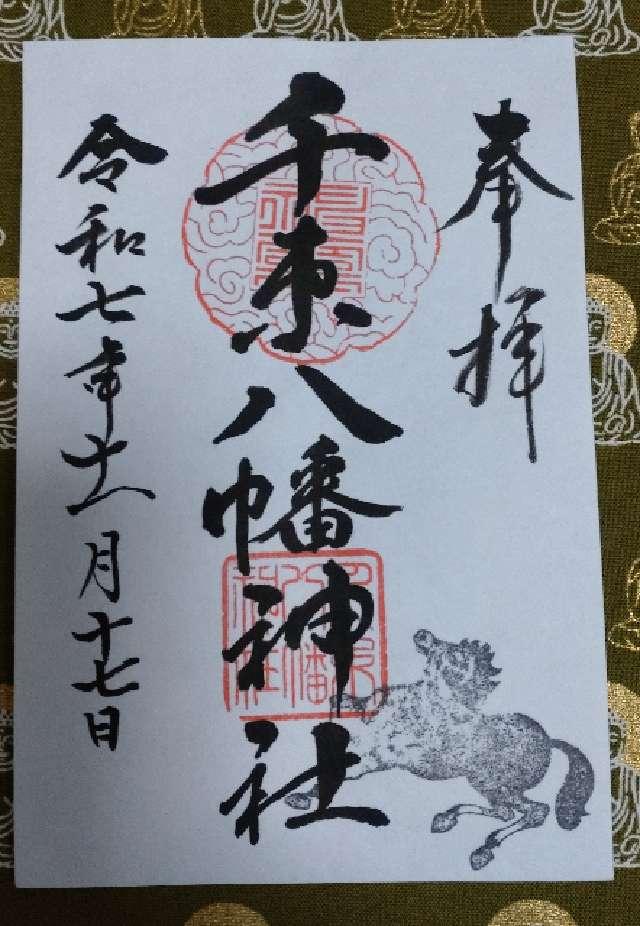 奉拝
千束八幡神社
令和七年十一月十七日